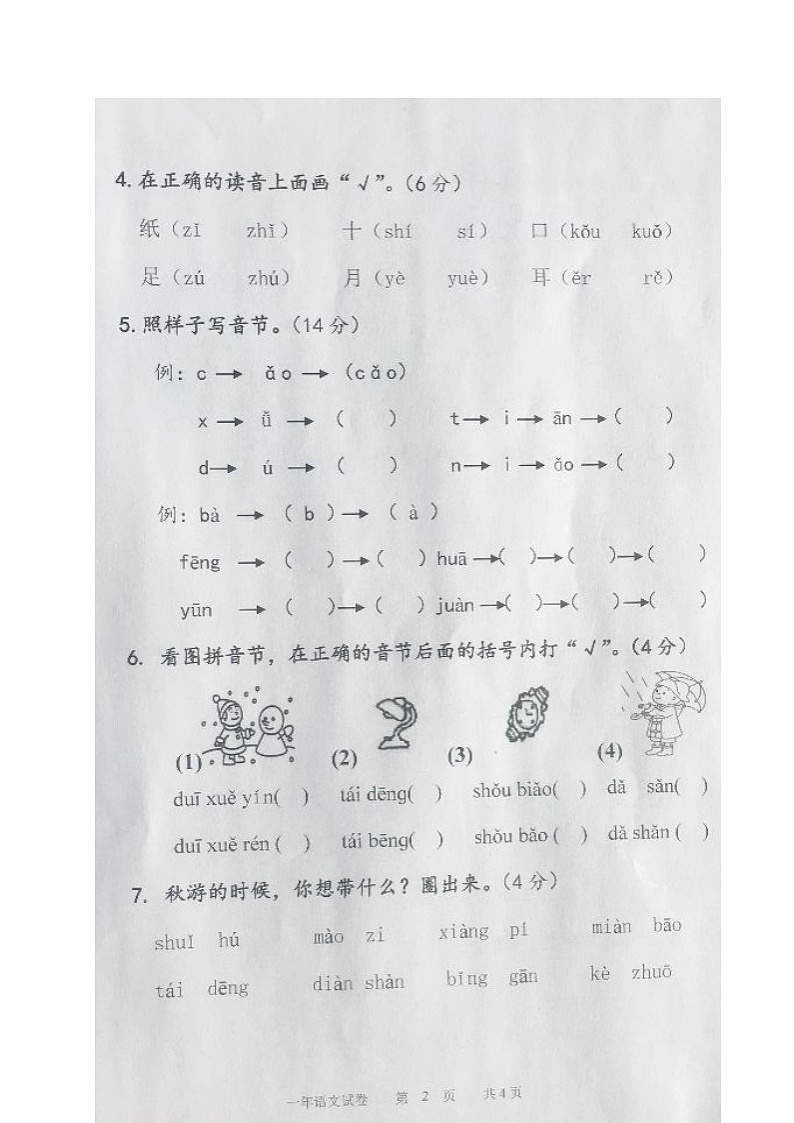 4.在正确的读音上面画“√”。(6分)
纸（zǐ zhǐ） 十（shí sí） 口（kǒu kuǒ）
足（zú zhú） 月（yè yuè） 耳（ěr rě）
5.照样子写音节。(14分)
例：c → ǎo → (cǎo)
x → ǚ → ( ) t → i → ān → ( )
d → ú → ( ) n → i → ǎo → ( )
例：bà → ( b ) → ( à )
fēng → ( ) → ( ) huā → ( ) → ( ) → ( )
yūn → ( ) → ( ) juàn → ( ) → ( ) → ( )
6. 看图拼音节，在正确的音节后面的括号内打“√”。(4分)
(1) (2) (3) (4)
duī xuě yín( ) tái dēng( ) shǒu biǎo( ) dǎ sǎn( )
duī xuě rén ( ) tái bēng( ) shǒu bǎo ( ) dǎ shǎn ( )
7. 秋游的时候，你想带什么？圈出来。(4分)
shuǐ hú mào zi xiàng pí miàn bāo
tái dēng diàn shàn bǐng gān kè zhuō
一年语文试卷 第 2 页 共4页